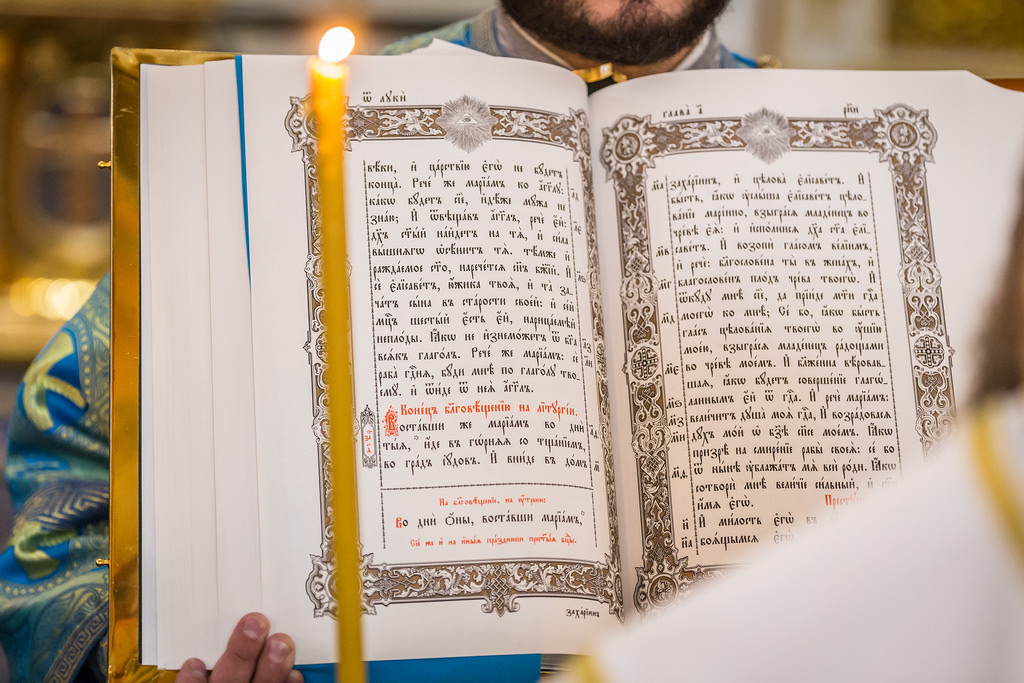 Ѿ лꙋкѝ
вѣ́ки, и҆ ца́рствїю є҆гѡ̀ не бꙋ́детъ
конца̀. Рече́ же марїа́мъ ко а҆́гг҃лꙋ:
ка́кѡ бꙋ́детъ сїѐ, и҆дѣ́же мꙋ́жа не
зна́ю; И҆ ѿвѣща́въ а҆́гг҃лъ, речѐ є҆́й:
дх҃ъ ст҃ы́й на́йдетъ на тѧ̀, и҆ си́ла
вы́шнѧгѡ ѡ҆сѣни́тъ тѧ̀. тѣ́мже и҆
ражда́емое ст҃о, нарече́тсѧ сн҃ъ бж҃їй. И҆
се́ є҆лїсаве́ть, ю҆́жика твоѧ̀, и҆ та̀ за-
ча́тъ сы́на въ ста́рости свое́й: и҆ се́й
мц҃ъ шесты́й є҆́сть є҆́й, нарица́емѣй
непло́ды. Ꙗ҆́кѡ не и҆знемо́жетъ ѿ бг҃а
всѧ́къ глаго́лъ. Рече́ же марїа́мъ: сѐ
раба̀ гд҇нѧ, бꙋ́ди мнѣ̀ по глаго́лꙋ тво-
емꙋ̀. и҆ ѿи́де ѿ неѧ̀ а҆́гг҃лъ.
Коне́цъ бл҃говѣ́щенїю на лїтꙋргі́и.
Воста́вши же марїа́мъ во дни̑
ты̑ѧ, и҆́де въ гѡ́рнѧѧ со тща́нїемъ,
во гра́дъ і҆ꙋ́довъ. И҆ вни́де въ до́мъ
На бл҃говѣ́щенїе, на ᲂу҆́трени:
Во дни̑ ѻ҆́ны, воста́вши марїа́мъ,
Сїѐ же и҆ на и҆ны̑ѧ пра́здники прест҃ы́ѧ бцⷣы.
заха́рїинъ
глава̀ а҃
рн҃и
заха́рїинъ, и҆ цѣлова̀ є҆лїсаве́ть. И҆
бы́сть, ꙗ҆́кѡ ᲂу҆слы́ша є҆лїсаве́ть цѣло-
ва́нїе марі́ино, взыгра́сѧ младе́нецъ во
чре́вѣ є҆ѧ̀: и҆ и҆спо́лнисѧ дх҃а ст҃а є҆лї-
саве́ть. И҆ возопѝ гла́сомъ ве́лїимъ,
и҆ речѐ: бл҃гослове́на ты̀ въ жена́хъ, и҆
бл҃гослове́нъ пло́дъ чре́ва твоегѡ̀. И҆
ѿкꙋ́дꙋ мнѣ̀ сїѐ, да прїи́де мт҃и гд҇а
моегѡ̀ ко мнѣ̀; Се́ бо, ꙗ҆́кѡ бы́сть
гла́съ цѣлова́нїѧ твоегѡ̀ во ᲂу҆́шїю
моє́ю, взыгра́сѧ младе́нецъ ра́дощами
во чре́вѣ мое́мъ. И҆ бл҃же́нна вѣ́ровав-
шаѧ, ꙗ҆́кѡ бꙋ́детъ соверше́нїе глаго́-
ланнымъ є҆́й ѿ гд҇а. И҆ речѐ марїа́мъ:
вели́читъ дꙋша̀ моѧ̀ гд҇а, И҆ возра́довасѧ
дꙋ́хъ мо́й ѡ҆ бз҃ѣ сп҃сѣ мое́мъ. Ꙗ҆́кѡ
призрѣ̀ на смире́нїе рабы̀ своеѧ̀: се́ бо
ѿ ны́нѣ ᲂу҆блажа́тъ мѧ̀ всѝ ро́ди. Ꙗ҆́кѡ
сотворѝ мнѣ̀ вели́чїе си́льный, и҆
и҆́мѧ є҆гѡ̀.
И҆ ми́лость є҆гѡ̀ въ
боѧ́щымсѧ